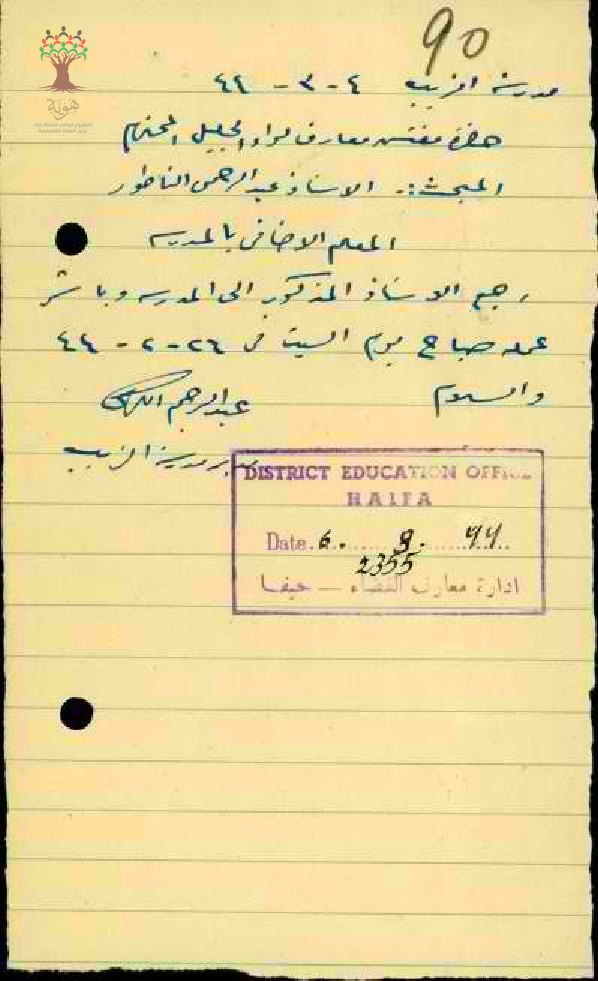 90
مدرسة الزيب ٤-٣-٤٤
حضرة مفتش معارف لواء الجليل المحترم
المبحث:. الاستاذ عبد الرحمن الناطور
المعلم الاضافي بالمدرسه
رجع الاستاذ المذكور الى المدرسه وباشر
عمله صباح يوم السبت في ٢٦-٢-٤٤
والسلام
عبد الرحيم
مدير مدرسة الزيب
DISTRICT EDUCATION OFFICE
HAIFA
Date. 6. 3. 44
2355
ادارة معارف القضاء — حيفا
هوية